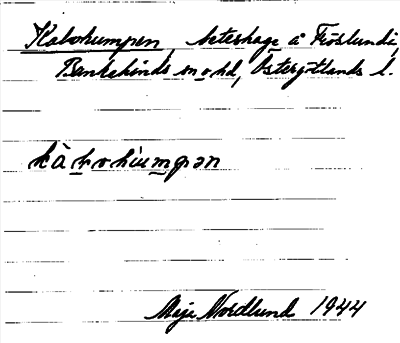 Kalvhumpen, beteshage å Fröslunda,
Bankekinds sn o hd, Östergötlands l.
Maja Nordlund 1944